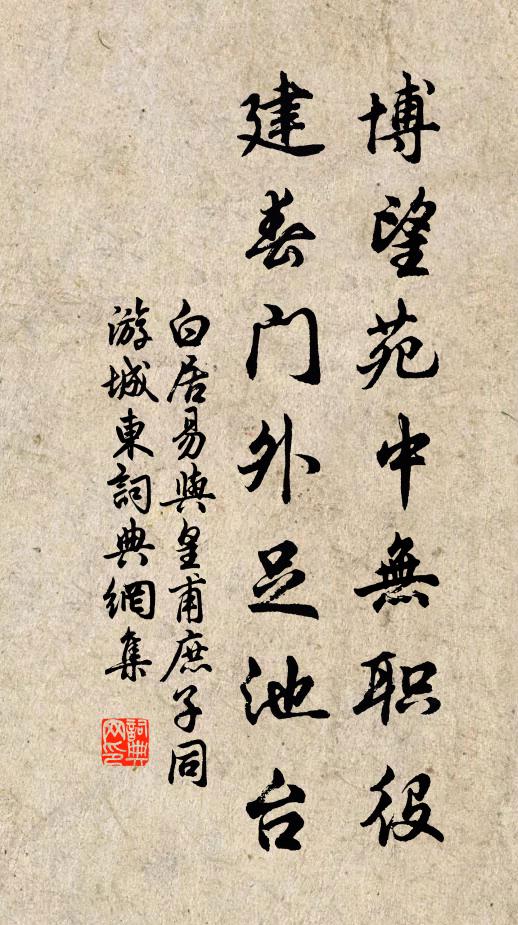 博望苑中無职役
建春门外足池台
白居易與皇甫庶子同
游城東詞典網集
詞典
网印